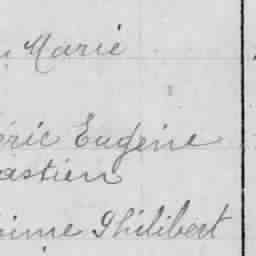 Marie
éric Eugène
astien
Philibert